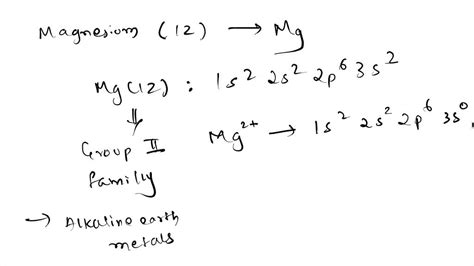 Magnesium (12) → Mg
Mg(12) : 1s² 2s² 2p⁶ 3s²
⇓
Group II
familly
Mg²⁺ → 1s² 2s² 2p⁶ 3s⁰.
→ Alkaline earth
metals